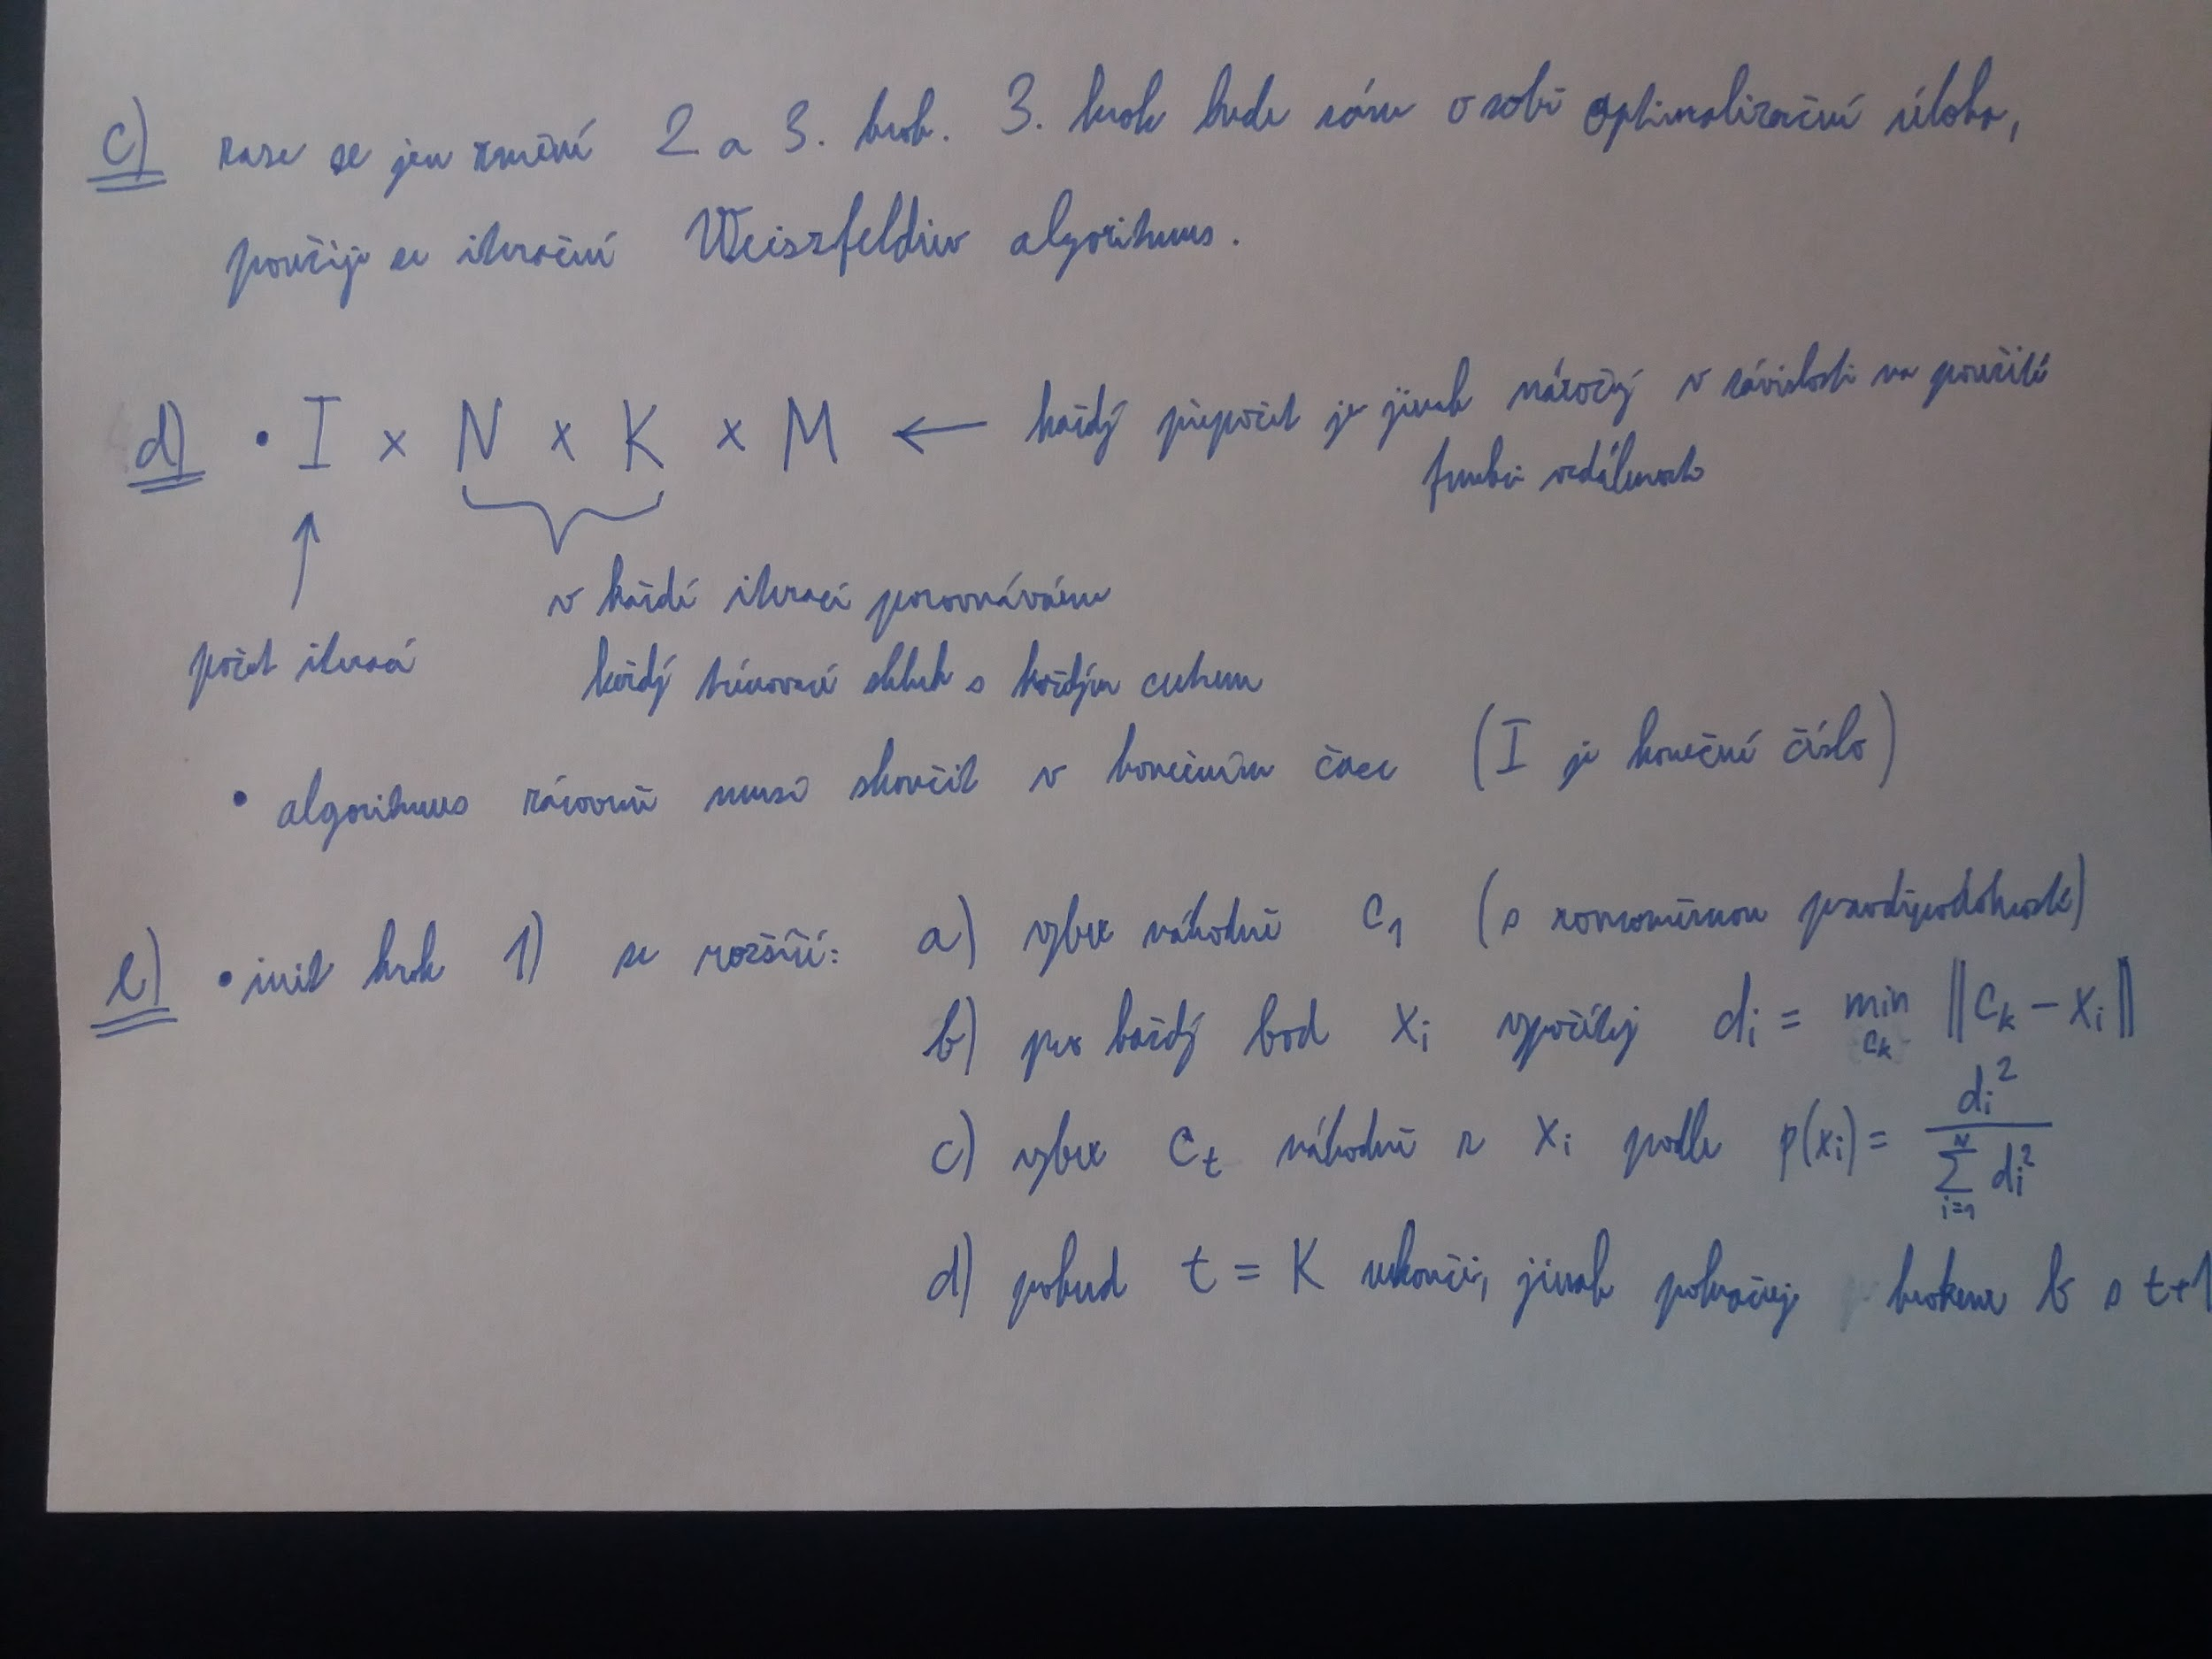 c) zase se jen změní 2 a 3. krok. 3. krok bude sám o sobě optimalizační úloha,
použije se iterační Weiszfeldův algoritmus.
d) • I × N × K × M ← každý přepočet je jinak náročný v závislosti na použité
funkci vzdálenosti
v každé iteraci porovnáváme
počet iterací
každý trénovací shluk s každým centrem
• algoritmus zároveň musí skončit v konečném čase (I je konečné číslo)
e) • init krok 1) se rozšíří: a) vyber náhodně c₁ (s rovnoměrnou pravděpodobností)
b) pro každý bod xᵢ vypočítej dᵢ = min_{cₖ} ||cₖ − xᵢ||
c) vyber cₜ náhodně z xᵢ podle p(xᵢ) = dᵢ² / ∑_{i=1}^{N} dᵢ²
d) pokud t = K ukonči, jinak pokračuj krokem b s t+1